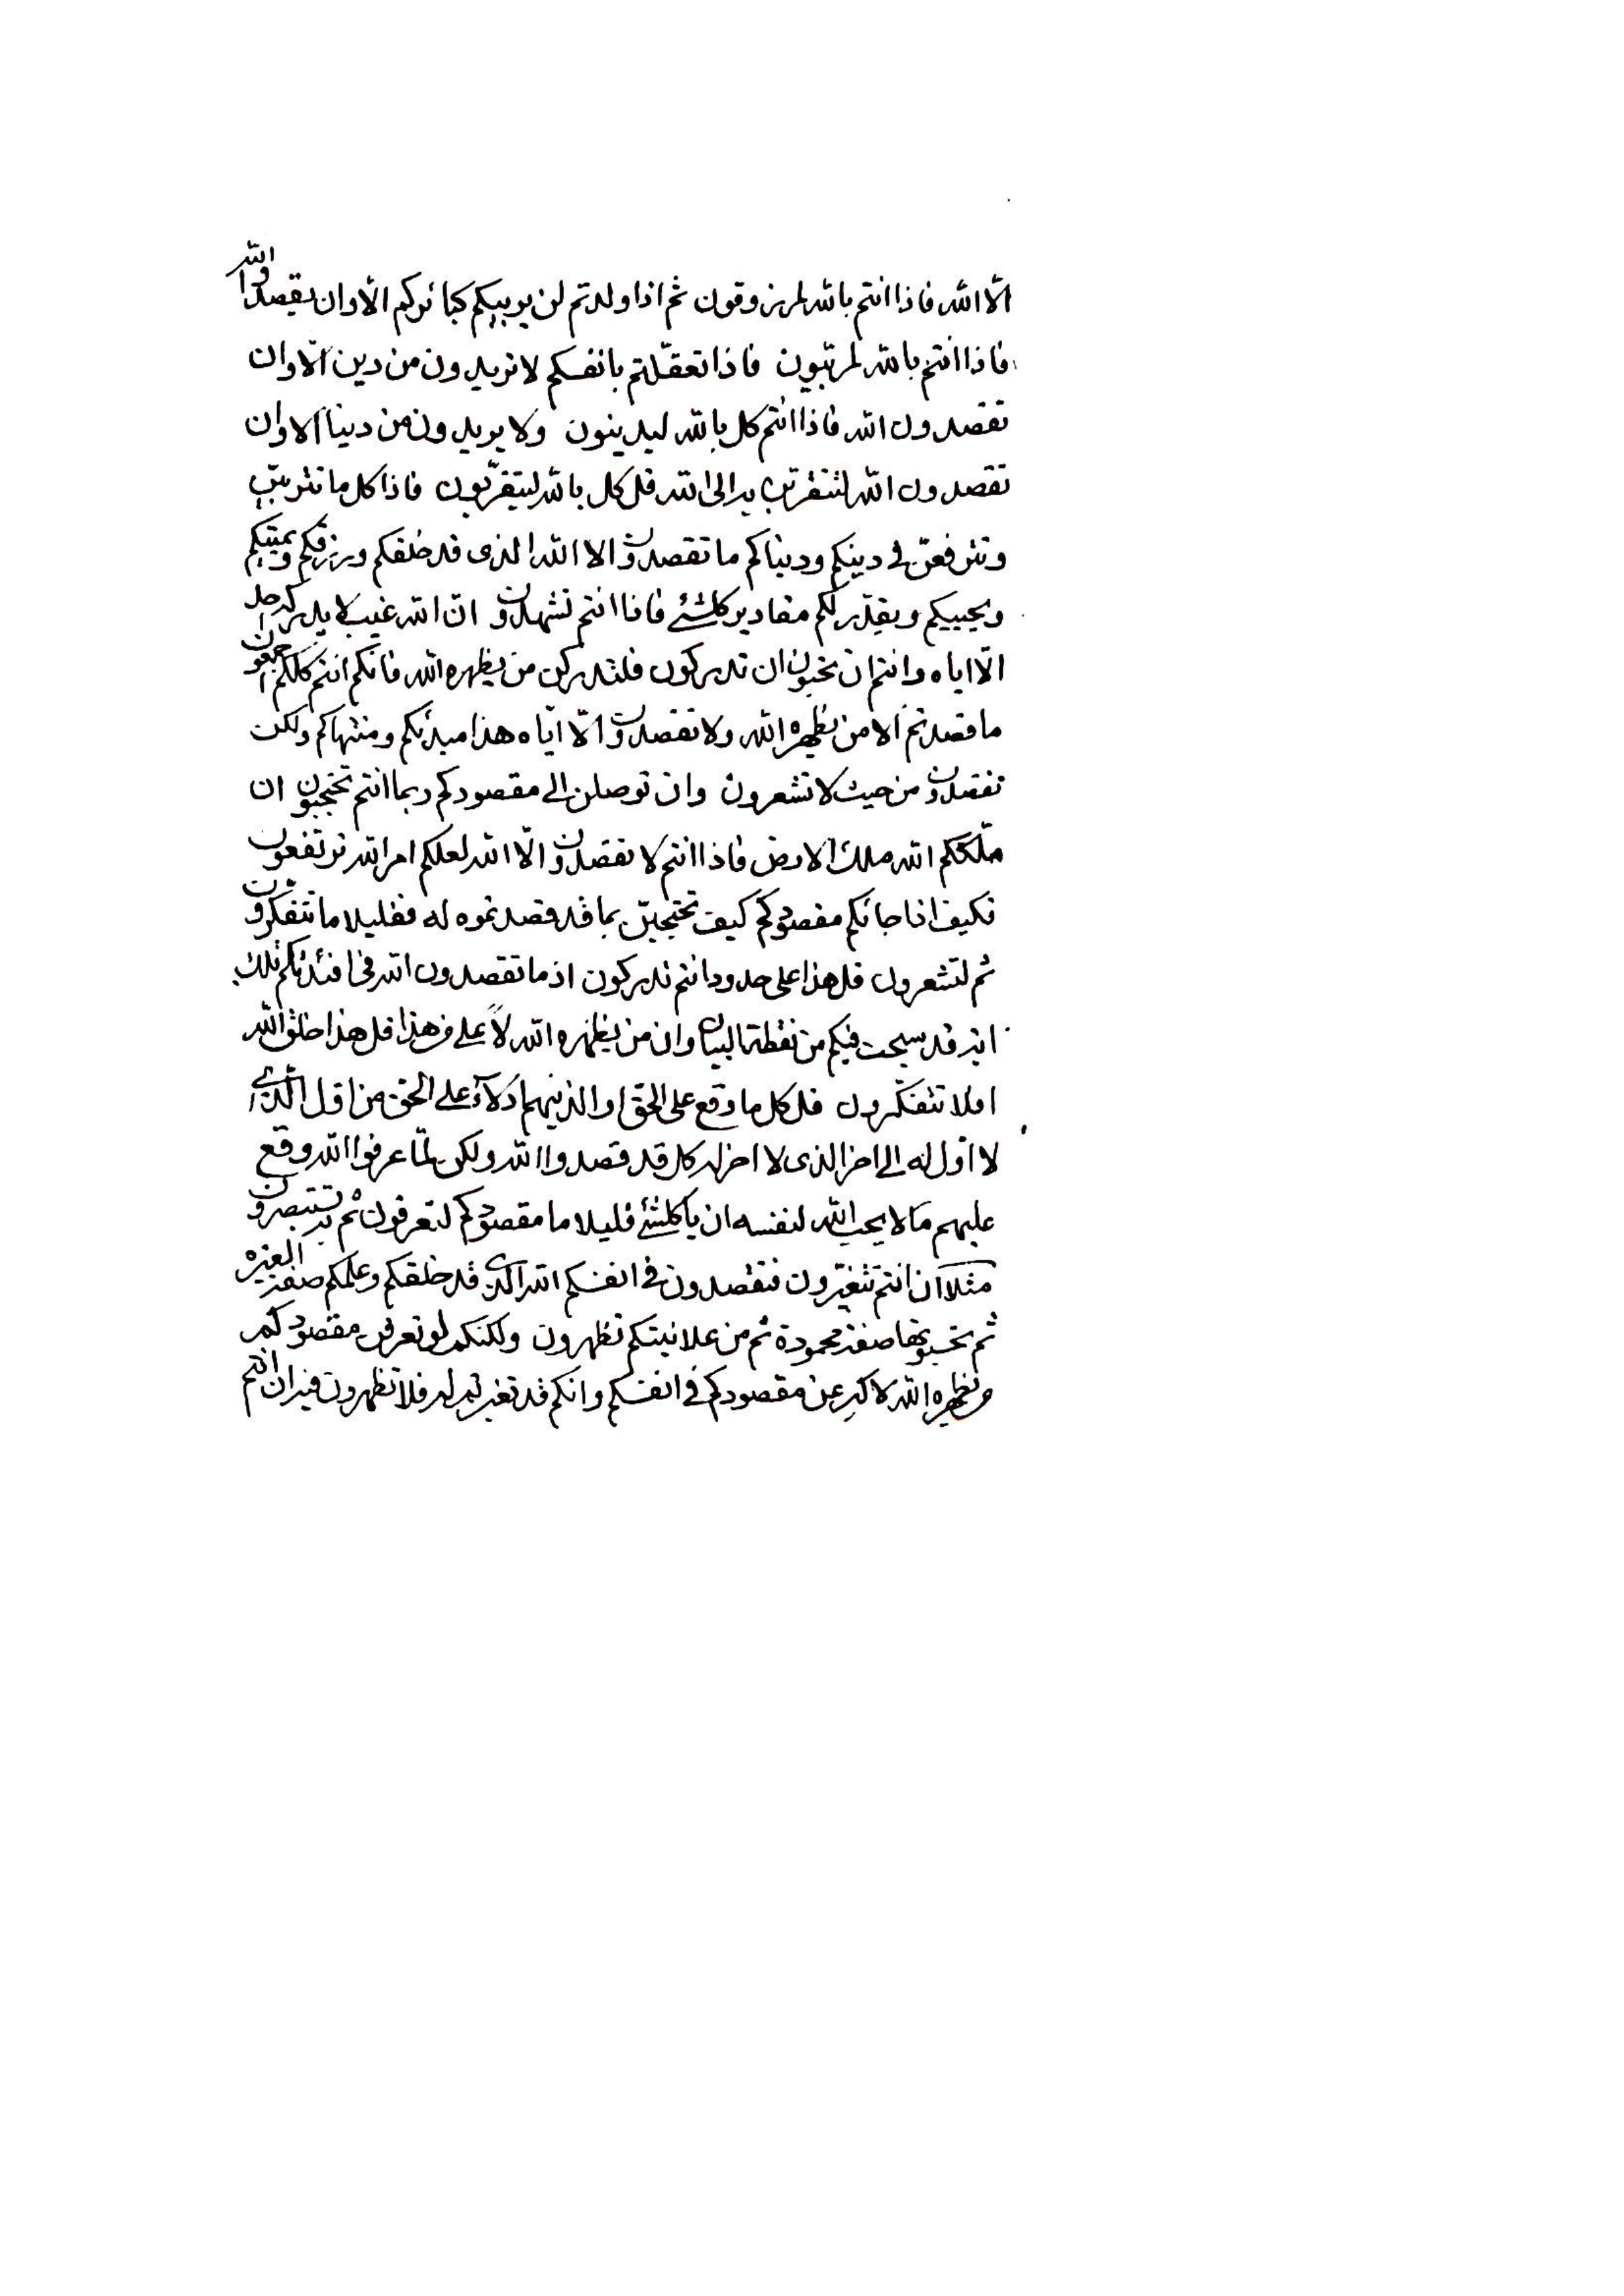 الا الله فاذا انتم بالله لمرزوقون ثم اذا ولدتم لن يربيكم كبائركم الا وان يقصدوا الله
فاذا انتم بالله لمربيون فاذا تعقلتم بانفسكم لا تريدون من دين الا وان
تقصدون الله فاذا انتم كل بالله ليدينون ولا يريدون من دينا الا وان
تقصدون الله لتتقربن به الى الله قل كل بالله ليتقربون فاذا كل ما تتربين
وترفعن في دينكم ودنياكم ما تقصدون الا الله الذي قد خلقكم ورزقكم ويميتكم
ويحييكم ويقدر لكم مقادير كلشئ فاذا انتم تشهدون ان الله غيب لا يدركه احد
الا اياه وانتم ان تحبون ان تدركون فلتدركن من يظهره الله فانكم انتم كلكم اجمعون
ما قصدتم الا من يظهره الله ولا تقصدون الا اياه هذا مبدئكم ومنتهاكم ولكن
تقصدون من حيث لا تشعرون وان توصلن الى مقصودكم ربما انتم تحتجبون ان
ملككم الله ملك الارض فاذا انتم لا تقصدون الا الله لعلكم امر الله ترتفعون
فكيف اذا جائكم مقصودكم كيف تحتجبن بما قد قصدتموه له فقليلا ما تتفكرون
ثم لتشعرون قل هذا على حدود انتم تدركون اذ ما تقصدون الله في افئدتكم تلك
اية قد سبحت فيكم من نقطة البيان وان من يظهره الله لاعلى من هذا قل هذا خلق الله
افلا تتفكرون قل كل ما وقع على الحق او الذينهم ادلاء على الحق من اول الذي
لا اول له الى اخر الذي لا اخر له كل قد قصدوا الله ولكن لما عرفوا الله وقع
عليهم ما لا يحب الله لنفسه ان يا كلشئ قليلا ما مقصودكم لتعرفون ثم به تستبصرون
مثلا ان انتم تتغيرون فتقصدون في انفسكم الله الذي قد خلقكم وعلمكم صفة الغيرة
ثم تحسبونها صفة محمودة ثم من علانيتكم تظهرون ولكنكم لو تعرفن مقصودكم
من يظهره الله لاكبر عن مقصودكم في انفسكم وانكم قد تغيرتم له فلا تظهرون فيه ان انتم